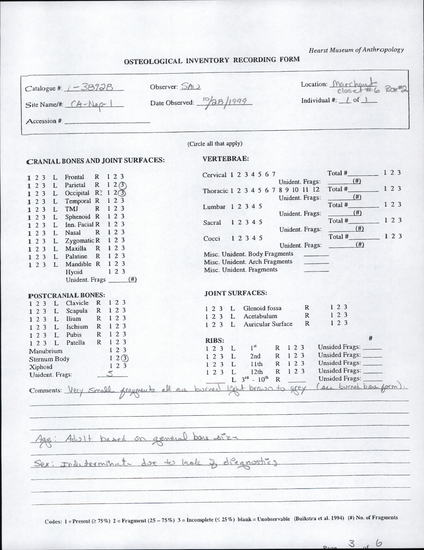 Hearst Museum of Anthropology
OSTEOLOGICAL INVENTORY RECORDING FORM
Catalogue #: 1-3892B Observer: Date Observed: 10/28/1999 Location: Marchant closet #6 Box #2
Site Name/#: CA-Nap-1 Individual #: 1 of 1
Accession #
(Circle all that apply)
CRANIAL BONES AND JOINT SURFACES:
1 2 3 L Frontal R 1 2 3
1 2 3 L Parietal R 1 2 3
1 2 3 L Occipital R 1 2 3
1 2 3 L Temporal R 1 2 3
1 2 3 L TMJ R 1 2 3
1 2 3 L Sphenoid R 1 2 3
1 2 3 L Inn. Facial R 1 2 3
1 2 3 L Nasal R 1 2 3
1 2 3 L Zygomatic R 1 2 3
1 2 3 L Maxilla R 1 2 3
1 2 3 L Palatine R 1 2 3
1 2 3 L Mandible R 1 2 3
Hyoid 1 2 3
Unident. Frags (#)
VERTEBRAE:
Cervical 1 2 3 4 5 6 7 Total # 1 2 3
Unident. Frags: (#)
Thoracic 1 2 3 4 5 6 7 8 9 10 11 12 Total # 1 2 3
Unident. Frags: (#)
Lumbar 1 2 3 4 5 Total # 1 2 3
Unident. Frags: (#)
Sacral 1 2 3 4 5 Total # 1 2 3
Unident. Frags: (#)
Cocci 1 2 3 4 5 Total # 1 2 3
Unident. Frags: (#)
Misc. Unident. Body Fragments
Misc. Unident. Arch Fragments
Misc. Unident. Fragments
POSTCRANIAL BONES:
1 2 3 L Clavicle R 1 2 3
1 2 3 L Scapula R 1 2 3
1 2 3 L Ilium R 1 2 3
1 2 3 L Ischium R 1 2 3
1 2 3 L Pubis R 1 2 3
1 2 3 L Patella R 1 2 3
Manubrium 1 2 3
Sternum Body 1 2 3
Xiphoid 1 2 3
Unident. Frags: 5
JOINT SURFACES:
1 2 3 L Glenoid fossa R 1 2 3
1 2 3 L Acetabulum R 1 2 3
1 2 3 L Auricular Surface R 1 2 3
RIBS: #
1 2 3 L 1st R 1 2 3 Unsided Frags:
1 2 3 L 2nd R 1 2 3 Unsided Frags:
1 2 3 L 11th R 1 2 3 Unsided Frags:
1 2 3 L 12th R 1 2 3 Unsided Frags:
L 3rd - 10th R Unsided Frags:
Comments: Very small fragments all are burned light brown to grey (see burned bone form).
Age: Adult based on general bone size
Sex: Indeterminate due to lack of diagnostics
Codes: 1 = Present (≥ 75%) 2 = Fragment (25 – 75%) 3 = Incomplete (≤ 25%) blank = Unobservable (Buikstra et al. 1994) (#) No. of Fragments
Page 3 of 6